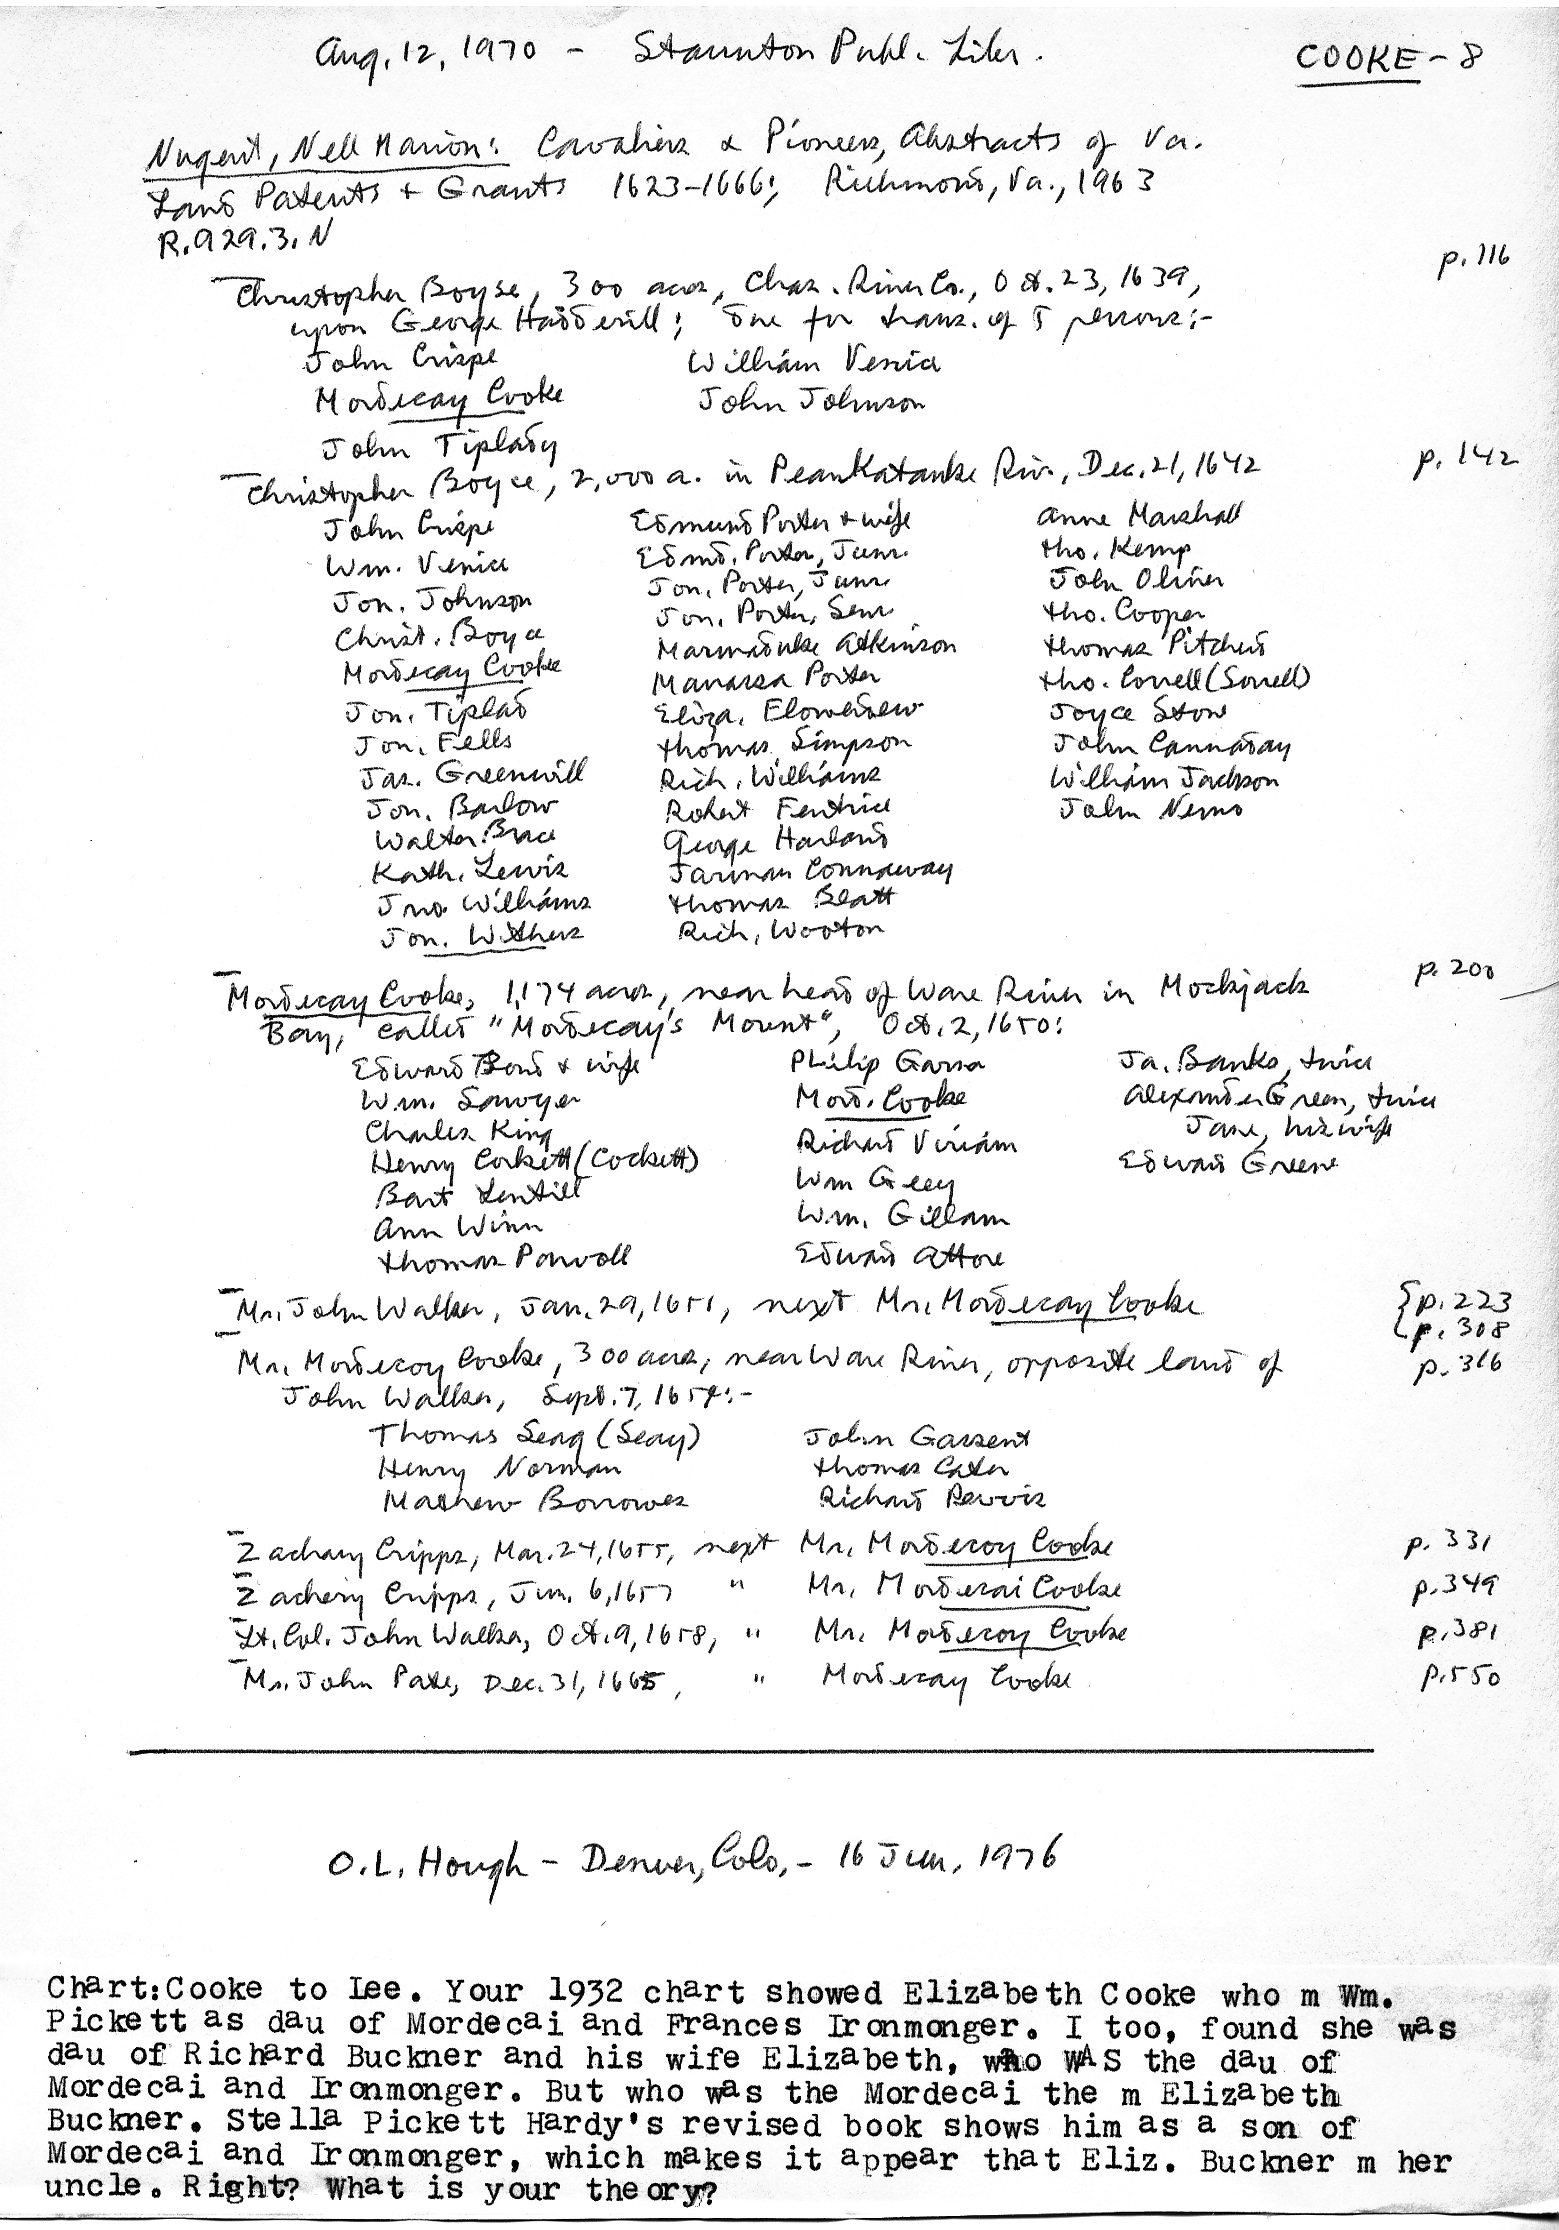 Aug. 12, 1970 - Staunton Publ. Libr.
COOKE - 8
Nugent, Nell Marion: Cavaliers & Pioneers, Abstracts of Va.
Land Patents + Grants 1623-1666; Richmond, Va., 1963
R.929.3.N
Christopher Boyse, 300 acres, Chas. River Co., Oct. 23, 1639, p. 116
upon George Hadderill; due for trans. of 5 persons:-
John Crispe William Venice
Mordecay Cooke John Johnson
John Tiplady
Christopher Boyce, 2,000 a. in Peankatanke Riv., Dec. 21, 1642 p. 142
John Crispe Edmund Porter + wife Anne Marshall
Wm. Venice Edmd. Porter, Junr. tho. Kemp
Jon. Johnson Jon. Porter, Junr John Oliver
Christ. Boyce Jon. Porter, Senr tho. Cooper
Mordecay Cooke Marmaduke Atkinson thomas Pitcherd
Jon. Tiplad Manassa Porter tho. Correll (Sorrell)
Jon. Fells Eliza. Joyce Stow
Jas. Greenwill thomas Simpson John Cannaday
Jon. Barlow Rich. Williams William Jackson
Walter Brace Robert Fentrice John Nemo
Kath. Lewis George Harland
Jno. Williams Jarman Connaway
Jon. Withers thomas Blatt
Rich. Wooton
Mordecay Cooke, 1,174 acres, near head of Ware River in Mockjack p. 200
Bay, called "Mordecay's Mount", Oct. 2, 1650:
Edward Bond + wife Philip Garra Ja. Banks, twice
Wm. Sawyer Mord. Cooke Alexander Green, twice
Charles King Richard Viriam Jane, his wife
Henry Corkett (Cockett) Wm Geey Edward Greene
Bart Lentill Wm. Gillam
Ann Winn Edward Attore
thomas Powoll
Mr. John Walker, Jan. 29, 1651, next Mr. Mordecay Cooke p. 223
p. 308
Mr. Mordecoy Cooke, 300 acres, near Ware River, opposite land of p. 316
John Walker, Sept. 7, 1654:-
Thomas Seag (Seay) John Garsent
Henry Norman thomas Cater
Mathew Borrowes Richard Pervis
Zachary Cripps, Mar. 24, 1655, next Mr. Mordecoy Cooke p. 331
Zachery Cripps, Jun. 6, 1657 " Mr. Mordecai Cooke p. 349
Lt. Col. John Walker, Oct. 9, 1658, " Mr. Mordecoy Cooke p. 381
Mr. John Pate, Dec. 31, 1665, " Mordecay Cooke p. 550
O. L. Hough - Denver, Colo, - 16 Jun, 1976
Chart:Cooke to Lee. Your 1932 chart showed Elizabeth Cooke who m Wm.
Pickett as dau of Mordecai and Frances Ironmonger. I too, found she was
dau of Richard Buckner and his wife Elizabeth, who WAS the dau of
Mordecai and Ironmonger. But who was the Mordecai the m Elizabeth
Buckner. Stella Pickett Hardy's revised book shows him as a son of
Mordecai and Ironmonger, which makes it appear that Eliz. Buckner m her
uncle. Right? What is your theory?